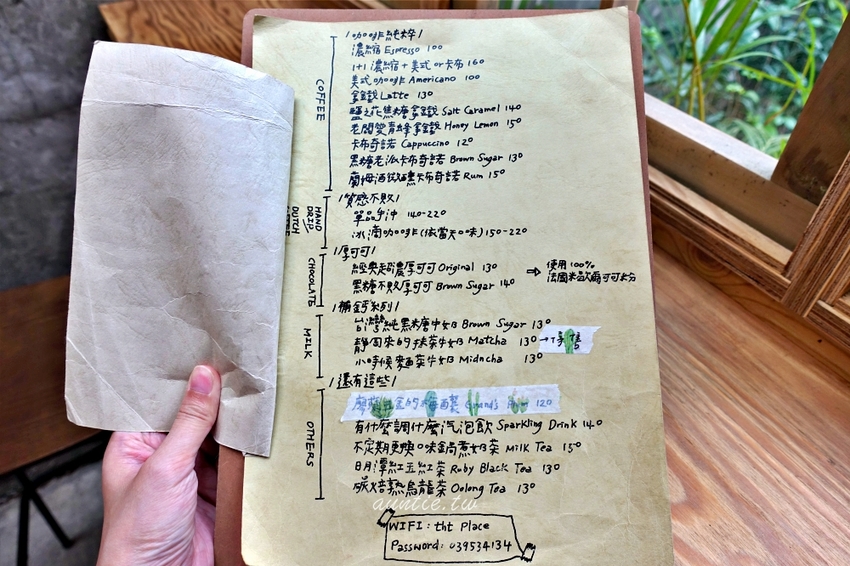 /咖啡純粹/
COFFEE
濃縮 Espresso 100
1+1 濃縮+美式 or 卡布 160
美式咖啡 Americano 100
拿鐵 Latte 130
鹽之花焦糖拿鐵 Salt Caramel 140
老闆愛青蜂拿鐵 Honey Lemon 150
卡布奇諾 Cappuccino 120
黑糖老派卡布奇諾 Brown Sugar 130
蘭姆酒微醺卡布奇諾 Rum 150
/質感不敗/
HAND DRIP
DUTCH
單品手沖 140-220
冰滴咖啡(依當天口味) 150-220
/厚可可/
CHOCOLATE
經典超濃厚可可 Original 130
⇒ 使用100%
法國米歇爾可可成分
黑糖不敗厚可可 Brown Sugar 140
/補鈣系列/
MILK
台灣純黑糖牛奶 Brown Sugar 130
靜岡來的抹茶牛奶 Matcha 130
小時候麵茶牛奶 Midncha 130
/還有這些/
OTHERS
120
有什麼調什麼汽泡飲 Sparkling Drink 140
不定期更換口味鍋煮奶茶 Milk Tea 150
日月潭紅玉紅茶 Ruby Black Tea 130
碳焙熟烏龍茶 Oolong Tea 130
auntie.tw
WIFI: tht Place
Password: 039534134